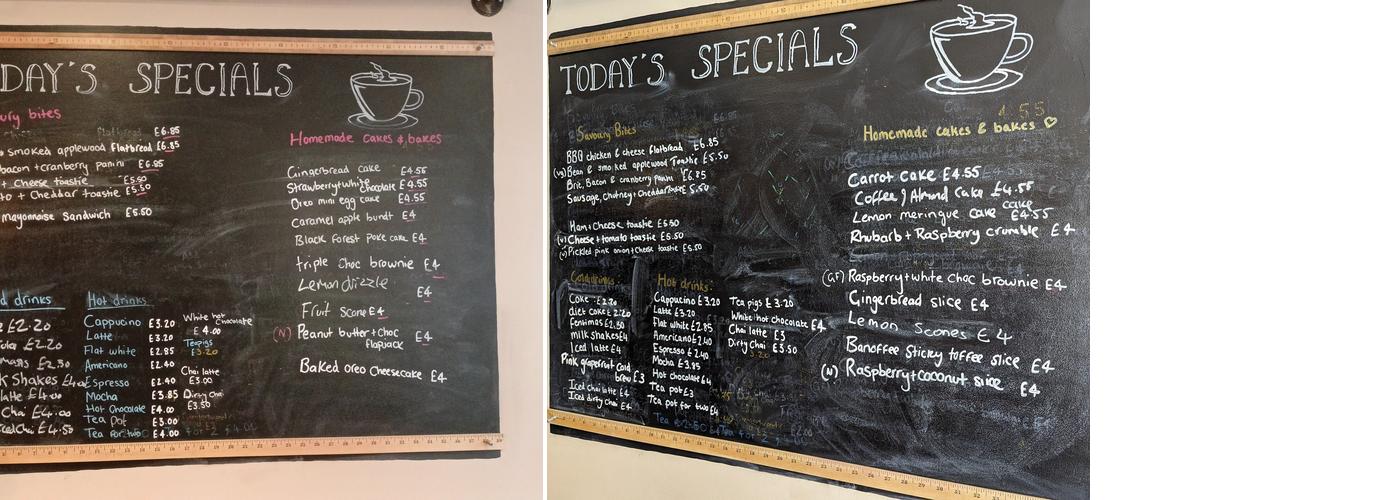 DAY'S SPECIALS
ury bites
Flatbread £6.85
smoked applewood Flatbread £6.85
bacon + cranberry panini £6.85
+ Cheese toastie £5.50
to + Cheddar toastie £5.50
mayonnaise Sandwich £5.50
Homemade cakes & bakes
Gingerbread cake £4.55
Strawberry + White Chocolate £4.55
Oreo mini egg cake £4.55
Caramel apple bundt £4
Black Forest poke cake £4
triple choc brownie £4
Lemon drizzle £4
Fruit Scone £4
(N) Peanut butter + choc flapjack £4
Baked Oreo Cheesecake £4
d drinks
£2.20
£2.20
£2.50
k Shakes £4.00
latte £4.00
Chai £4.00
Iced Chai £4.50
Hot drinks
Cappucino £3.20
Latte £3.20
Flat white £2.85
Americano £2.40
Espresso £2.40
Mocha £3.85
Hot Chocolate £4.00
Tea Pot £3.00
Tea for two £4.00
White hot Chocolate
£4.00
Teapigs
£3.20
Chai latte
£3.00
Dirty Chai
£3.50
TODAY'S SPECIALS
Savoury Bites
BBQ chicken & cheese flatbread £6.85
(vg) Bean & smoked applewood Toastie £5.50
Brie, Bacon & cranberry panini £6.85
Sausage, chutney + Cheddar toastie 5.50
Ham + Cheese toastie £5.50
(v) Cheese + tomato toastie £5.50
(v) Pickled pink onion + Cheese toastie £5.50
Cold drinks
Coke £2.20
diet coke £2.20
Fentimas £2.50
milkshakes £4
Iced latte £4
Pink grapefruit cold brew £3
Iced chai latte £4
Iced dirty chai £4
Hot drinks:
Cappucino £3.20
Latte £3.20
Flat white £2.85
Americano £2.40
Espresso £2.40
Mocha £3.85
Hot chocolate £4
Tea pot £3
Tea pot for two £4
Tea pigs £3.20
White hot chocolate £4
Chai latte £3
Dirty Chai £3.50
4.55
Homemade cakes & bakes ♡
Carrot cake £4.55
Coffee & Almond Cake £4.55
Lemon meringue cake £4.55
Rhubarb + Raspberry crumble cake £4
(GF) Raspberry + white choc brownie £4
Gingerbread slice £4
Lemon Scones £4
Banoffee Sticky toffee slice £4
(N) Raspberry + coconut slice £4